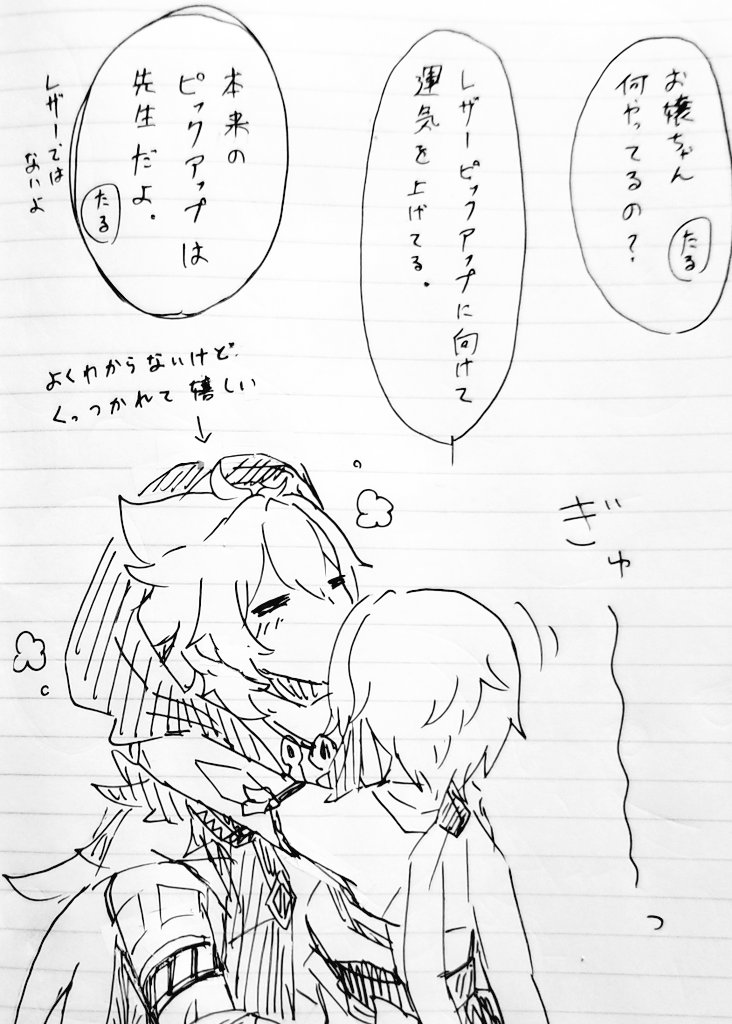 お嬢ちゃん
何やってるの?
たる
レザーピックアップに向けて
運気を上げてる。
本来の
ピックアップは
先生だよ。
たる
レザーでは
ないよ
よくわからないけど
くっつかれて嬉しい
ぎゅ
っ